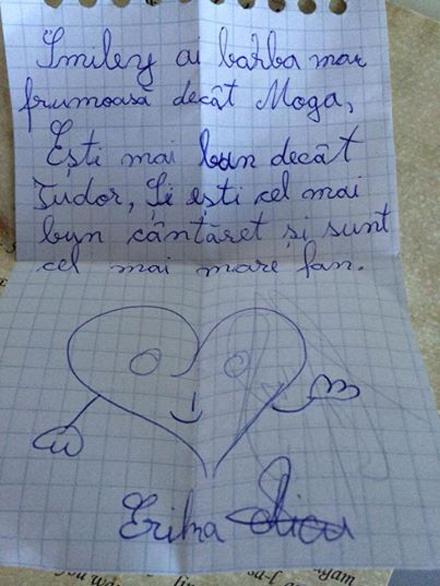 Smiley ai barba mai
frumoasă decât Moga,
Ești mai bun decât
Tudor, Și ești cel mai
byn cântăret și sunt
cel mai mare fan.
Erika